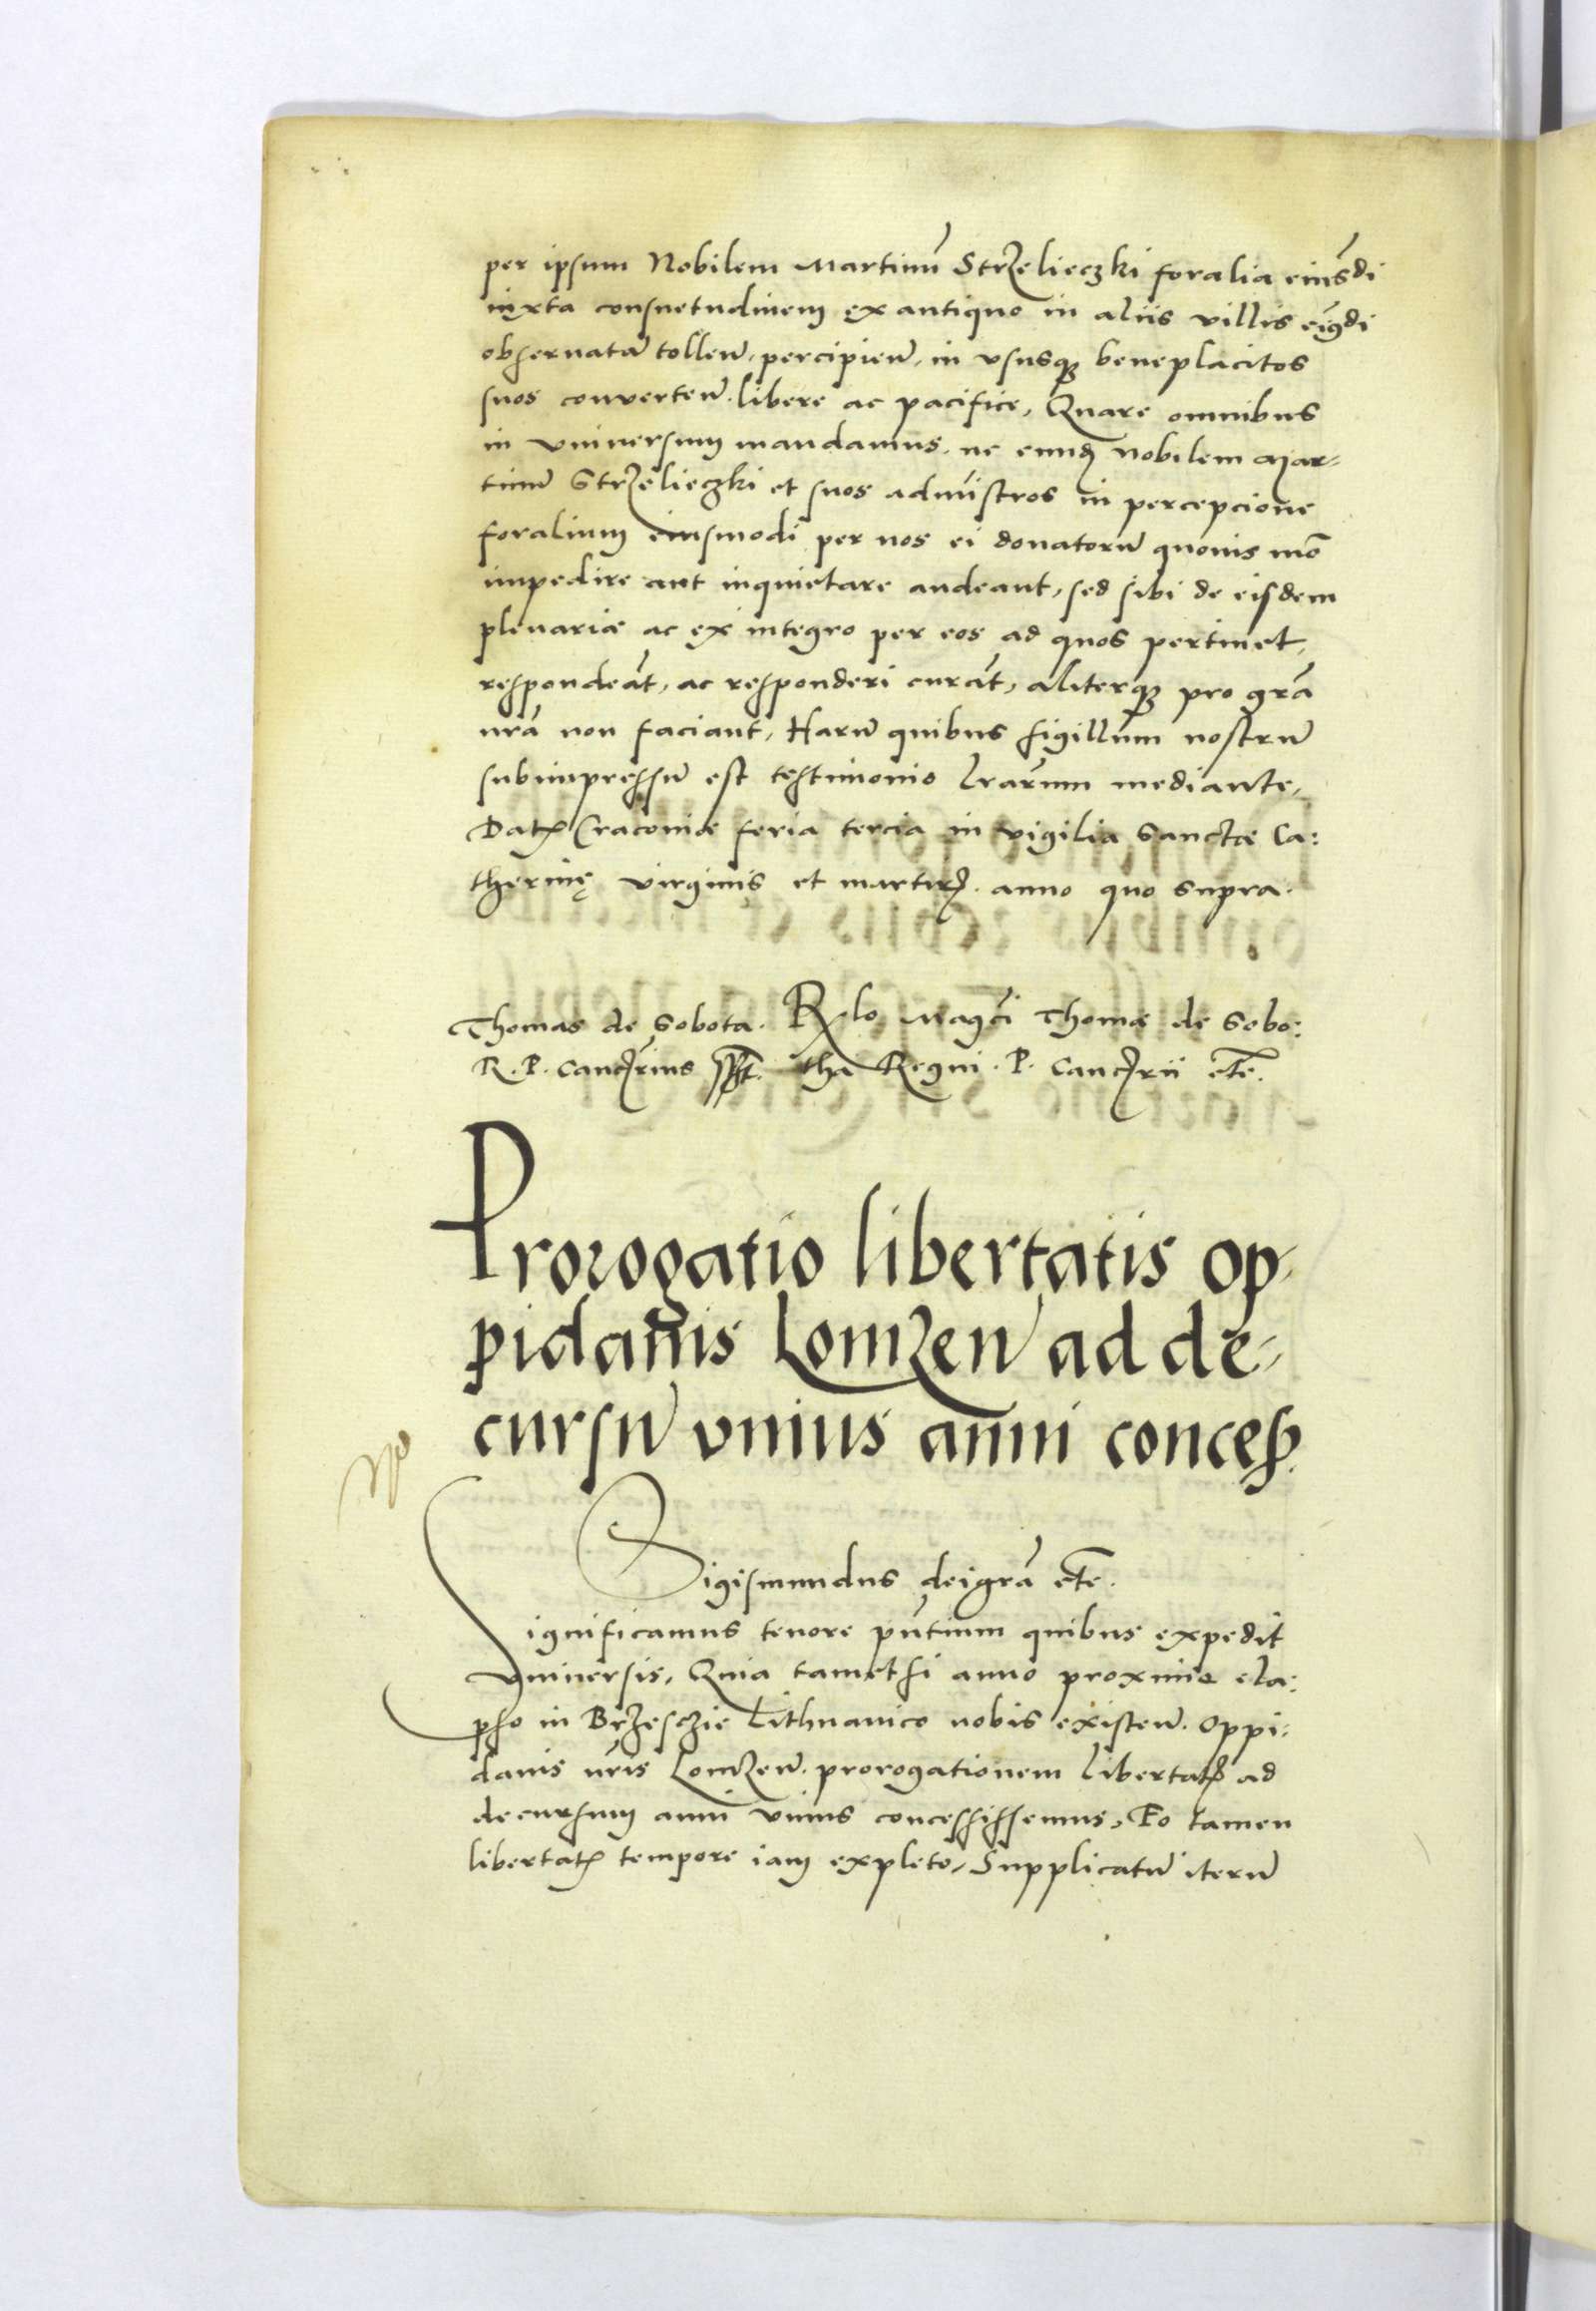 per ipsum Nobilem Martinū Strzelieczki foralia eiusdi
iuxta consuetudinem ex antiquo in aliis villis eiusdi
obseruatā tolleñ. percipieñ. in vsusq; beneplacitos
suos conuerteñ. libere ac pacifice, Quare omnibus
in vniuersum mandamus. ne eund nobilem Mar-
tinū Strzelieczki et suos admīstros in percepcione
foralium eiusmodi per nos ei donatorū quouis mōo
impedire aut inquietare audeant, sed sibi de eisdem
plenariæ ac ex integro per eos ad quos pertinet,
respondeāt, ac responderi curāt, aliterq; pro grā
nrā non faciant, Harū quibus sigillum nostrū
subimpressū est testimonio lrārum mediante,
Datꝭ Cracouiæ feria tercia in vigilia Sanctæ Ca:
therinę virginis et martirꝭ. anno quo supra.
Thomas de Sobota. R. P. Cancrius sspt.
Rlo Magci Thomæ de Sobo:
tha Regni. P. Cancrii etc.
Prorogatio libertatis op-
pidanis Lomzeñ ad de-
cursū vnius anni concess.
No
Sigismundus dei grā etc.
Significamus tenore pn̄tium quibus expedit
vniuersis, Quia tametsi anno proxime ela:
pso in Brzesczie Lithuanico nobis existeñ. oppi:
danis nrīs Lomzeñ. prorogationem libertatꝭ ad
decursum anni vnius concessissemus, Eo tamen
libertatꝭ tempore iam expleto, Supplicatū iterū